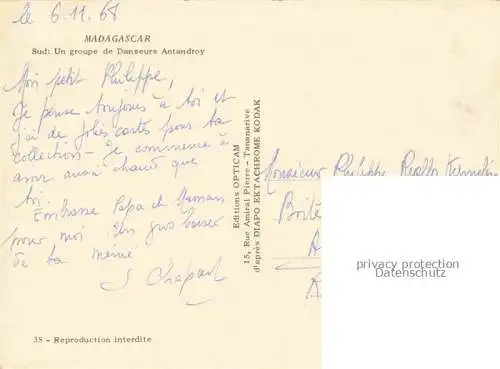 le 6.11.68
MADAGASCAR
Sud: Un groupe de Danseurs Antandroy
Mon petit Philippe,
Je pense toujours à toi et
j'ai de jolies cartes pour ta
collection - Je commence à
avoir aussi chaud que
toi.
Embrasse Papa et Maman
pour moi. Un gros baiser
de ta mémé
S Chapart
38 - Reproduction interdite
Editions OPTICAM
15, Rue Amiral Pierre - Tananarive
d'après DIAPO EKTACHROME KODAK
Monsieur Philippe
Boîte
A
privacy protection
Datenschutz